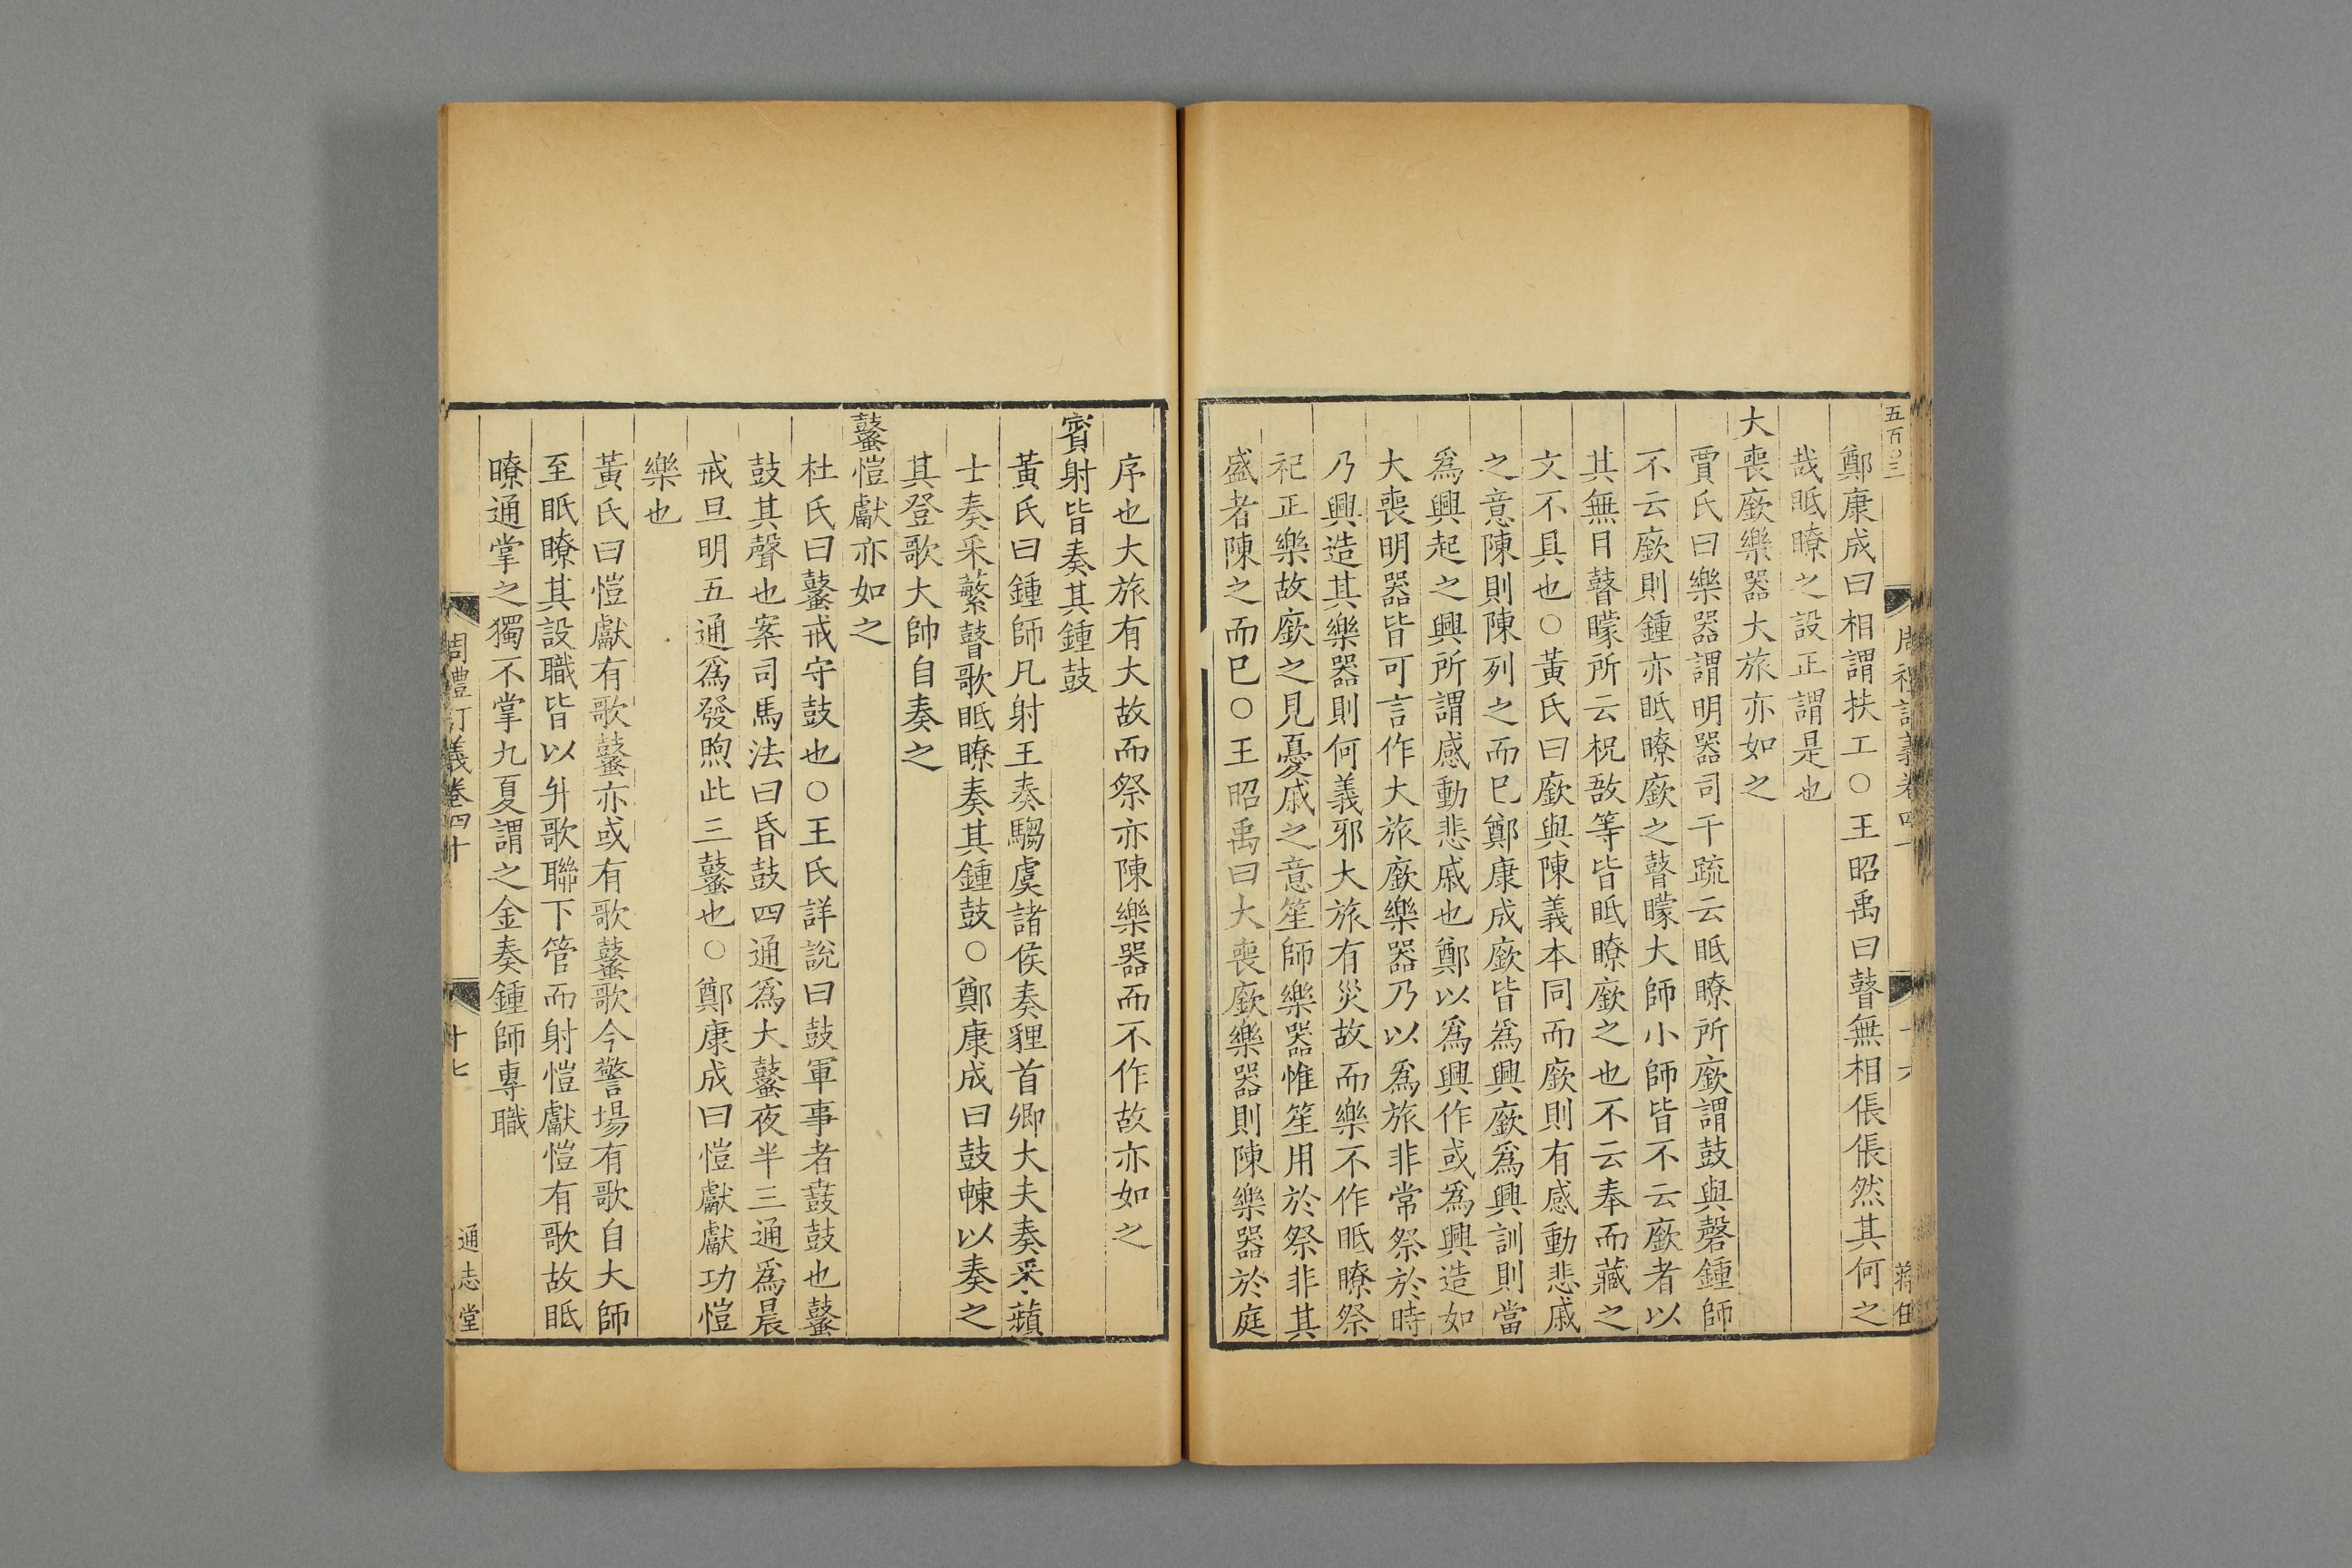 五百〇三
鄭康成曰相謂扶工○王昭禹曰瞽無相倀倀然其何之
哉眡瞭之設正謂是也
大喪廞樂器大旅亦如之
賈氏曰樂器謂明器司干䟽云眡瞭所廞謂鼓與磬鍾師
不云廞則鍾亦眡瞭廞之瞽矇大師小師皆不云廞者以
其無目瞽矇所云柷敔等皆眡瞭廞之也不云奉而藏之
文不具也○黃氏曰廞與陳義本同而廞則有感動悲戚
之意陳則陳列之而巳鄭康成廞皆爲興廞爲興訓則當
爲興起之興所謂感動悲戚也鄭以爲興作或爲興造如
大喪明器皆可言作大旅廞樂器乃以爲旅非常祭於時
乃興造其樂器則何義邪大旅有災故而樂不作眡瞭祭
祀正樂故廞之見憂戚之意笙師樂器惟笙用於祭非其
盛者陳之而巳○王昭禹曰大喪廞樂器則陳樂器於庭
序也大旅有大故而祭亦陳樂器而不作故亦如之
賓射皆奏其鍾鼓
黃氏曰鍾師凡射王奏騶虞諸侯奏貍首卿大夫奏采蘋
士奏采蘩瞽歌眡瞭奏其鍾鼓○鄭康成曰鼓㯥以奏之
其登歌大帥自奏之
鼜愷獻亦如之
杜氏曰鼜戒守鼓也○王氏詳說曰鼓軍事者鼖鼓也鼜
鼓其聲也案司馬法曰昏鼓四通爲大鼜夜半三通爲晨
戒旦明五通爲發煦此三鼜也○鄭康成曰愷獻獻功愷
樂也
黃氏曰愷獻有歌鼜亦或有歌鼜歌今警場有歌自大師
至眡瞭其設職皆以升歌聯下管而射愷獻愷有歌故眡
瞭通掌之獨不掌九夏謂之金奏鍾師專職
周禮訂義卷四十
十七
通志堂